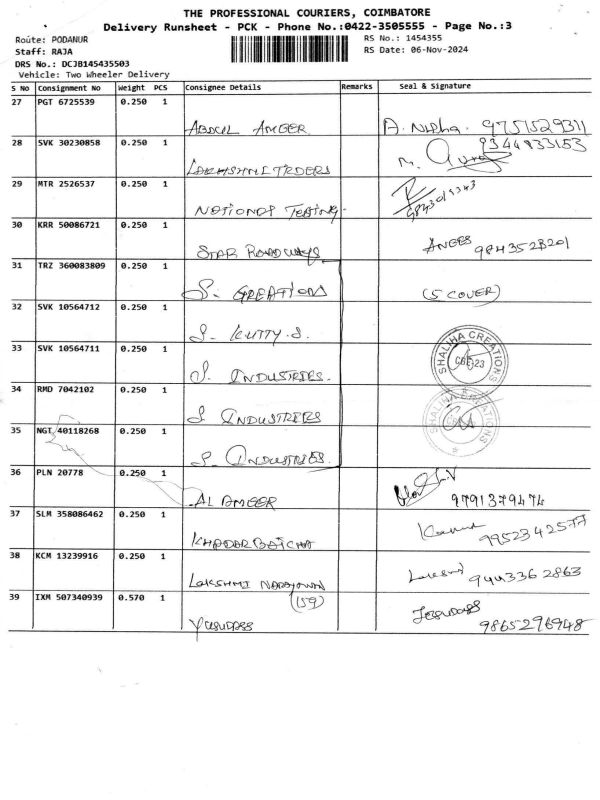 THE PROFESSIONAL COURIERS, COIMBATORE
Delivery Runsheet - PCK - Phone No.:0422-3505555 - Page No.:3
Route: PODANUR RS No.: 1454355
Staff: RAJA RS Date: 06-Nov-2024
DRS No.: DCJB145435503
Vehicle: Two Wheeler Delivery
S No Consignment No Weight PCS Consignee Details Remarks Seal & Signature
27 PGT 6725539 0.250 1
ABDUL AMEER 9751529311
28 SVK 30230858 0.250 1 9344933153
LAKHSHMI TRDERS
29 MTR 2526537 0.250 1
NATIONAL TESTING
30 KRR 50086721 0.250 1
STAR ROADWAYS ANEES 9843523201
31 TRZ 360083809 0.250 1
S. CREATION (5 COVER)
32 SVK 10564712 0.250 1
S. KUTTY.S.
33 SVK 10564711 0.250 1 SHALIHA CREATIONS CBE-23
S. INDUSTRIES.
34 RMD 7042102 0.250 1 SHALIHA CREATIONS
S INDUSTRIES
35 NGT 40118268 0.250 1
S. INDUSTRIES.
36 PLN 20778 0.250 1
AL AMEER 9791379474
37 SLM 358086462 0.250 1
KHADAR BATCHA 9952342577
38 KCM 13239916 0.250 1
LAKSHMI NARAYANAN 9443362863
39 IXM 507340939 0.570 1 (59)
YESUDASS Jesudass 9865296948